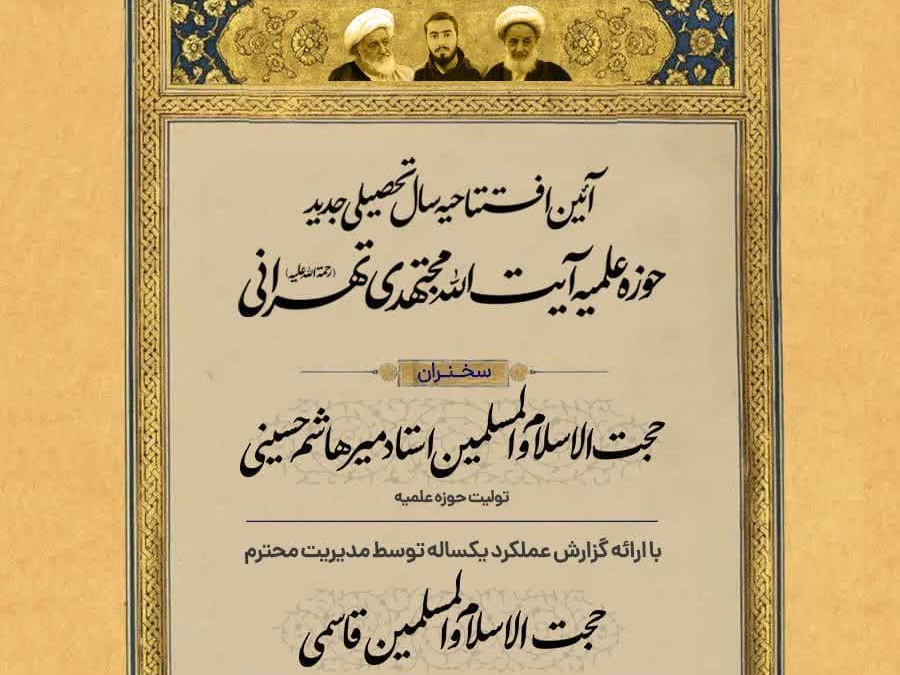 آئین افتتاحیه سال تحصیلی جدید
حوزه علمیه آیت الله مجتهدی تهرانی (رحمة الله علیه)
سخنران
حجت الاسلام والمسلمین استاد میرهاشم حسینی
تولیت حوزه علمیه
با ارائه گزارش عملکرد یکساله توسط مدیریت محترم
حجت الاسلام والمسلمین قاسمی